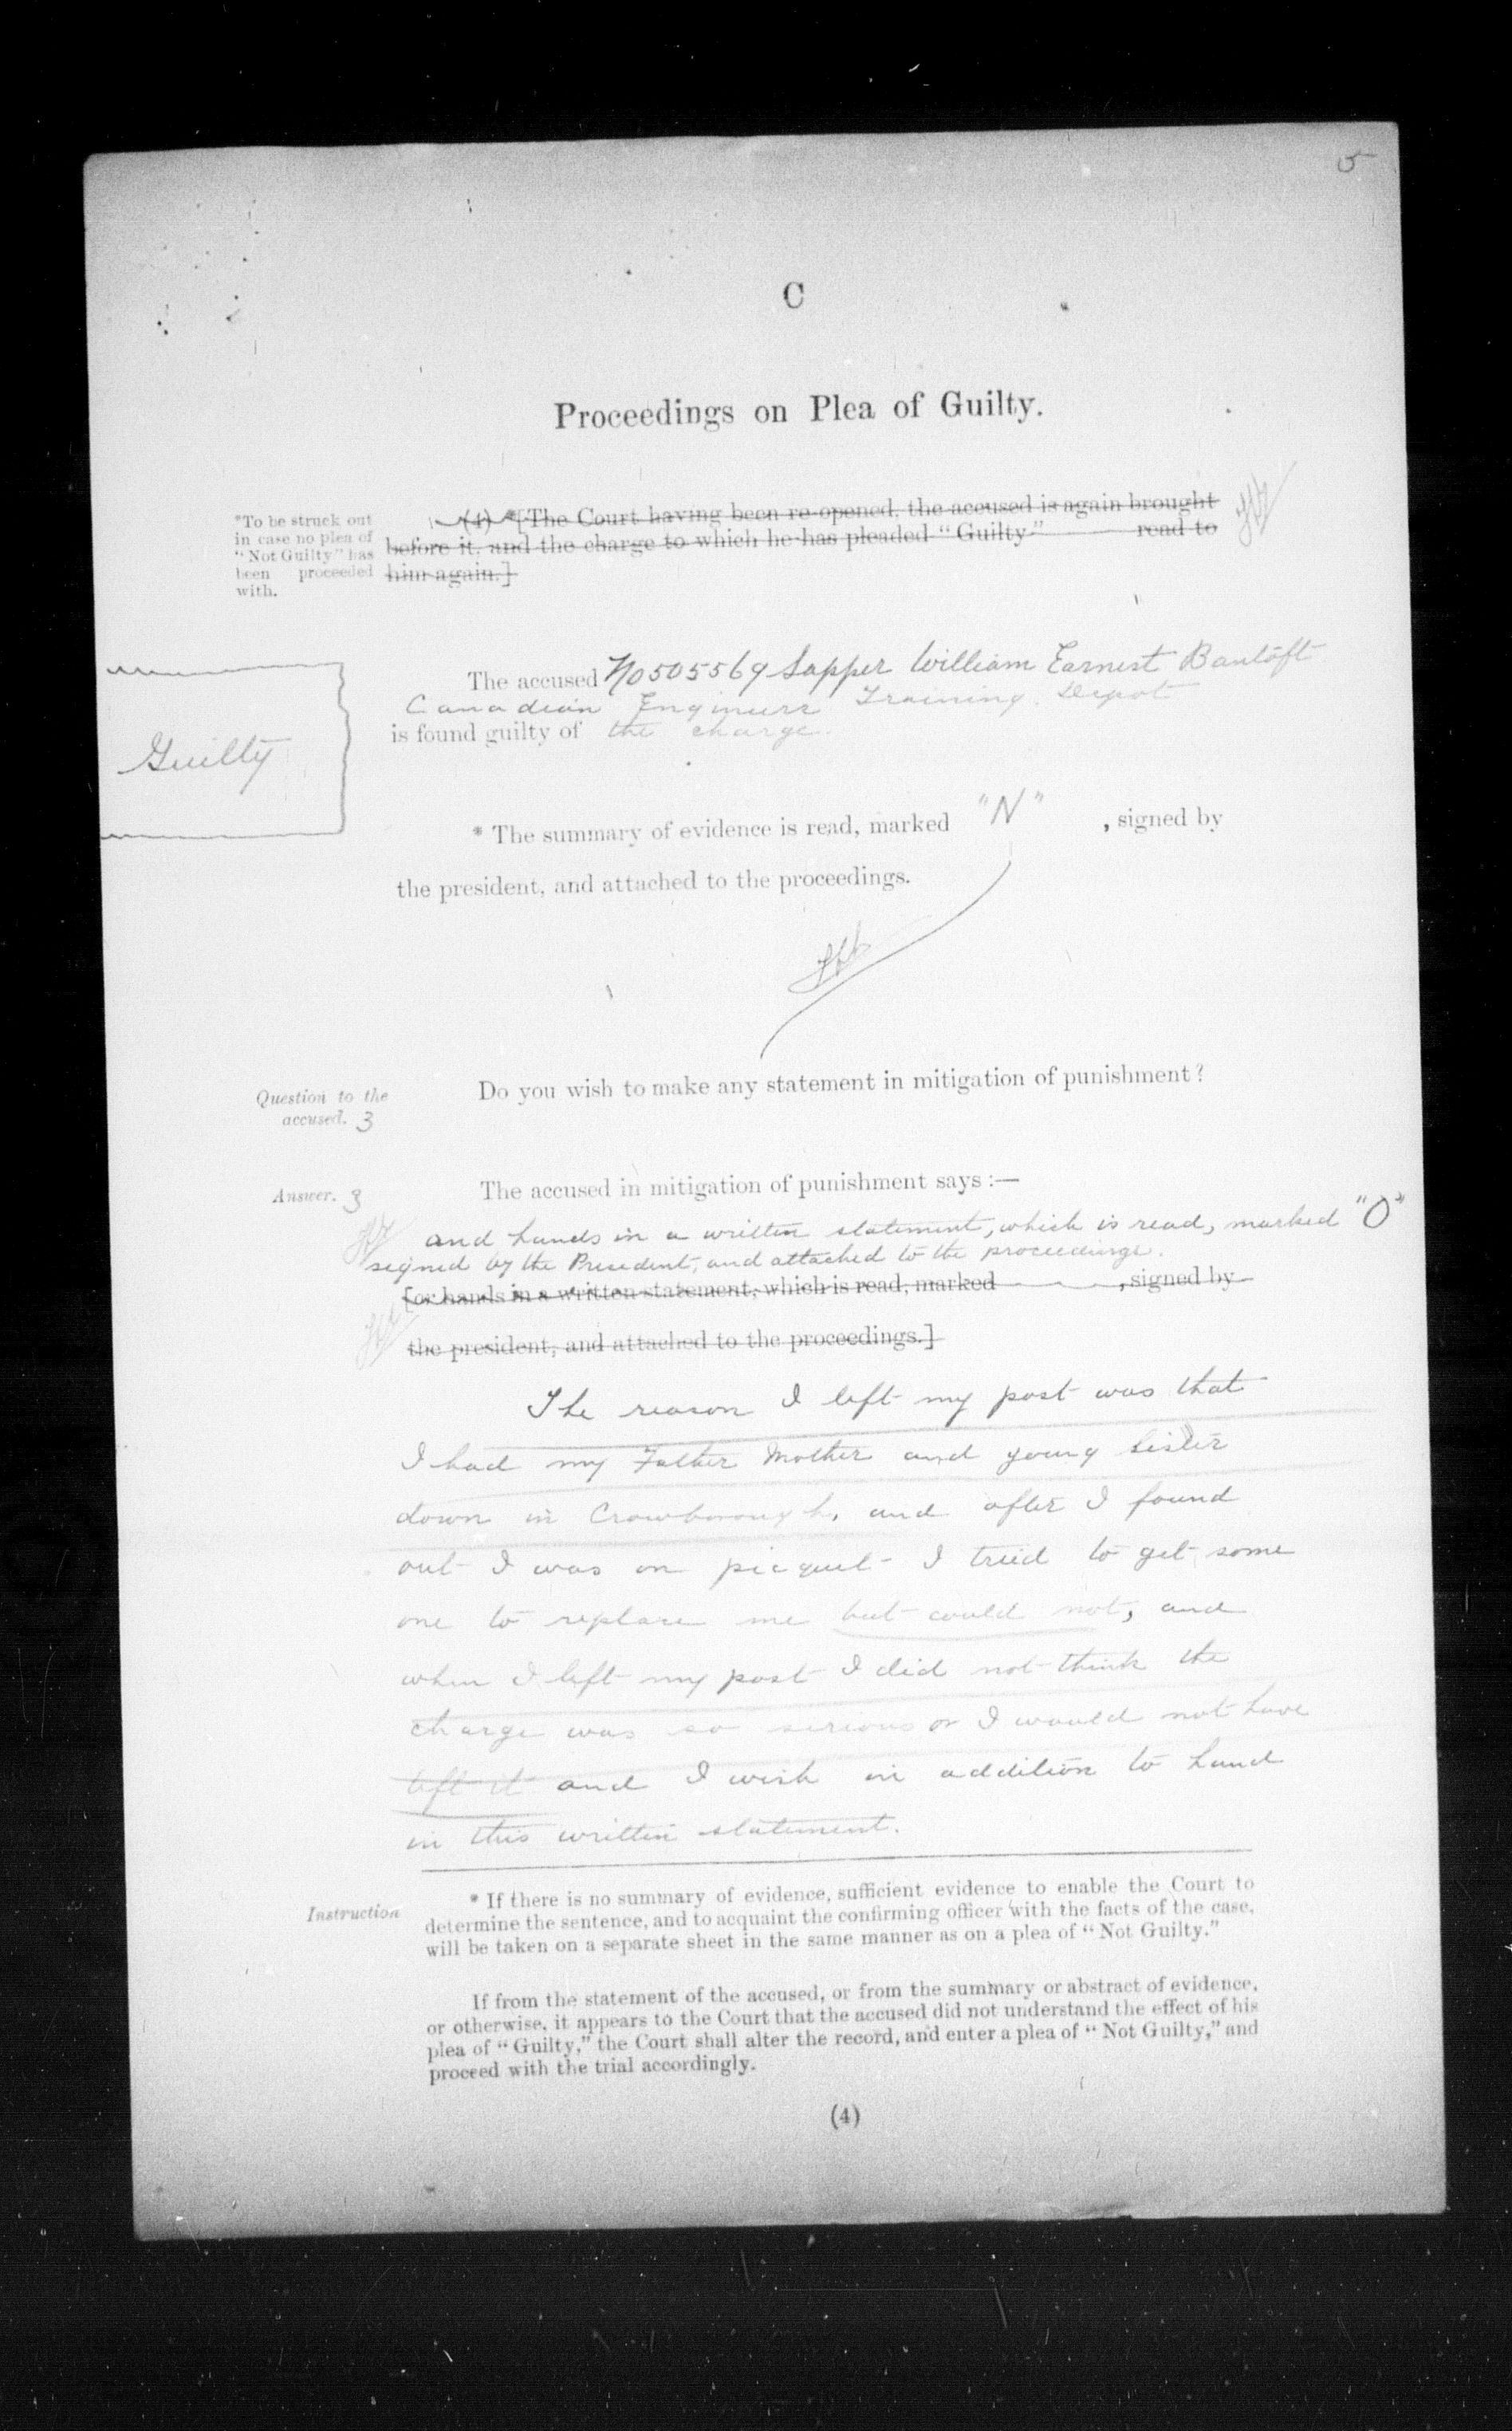 5
C
Proceedings on Plea of Guilty.
*To be struck out
in case no plea of
"Not Guilty" has
been proceeded
with.
(4) *[The Court having been re-opened, the accused is again brought
before it, and the charge to which he has pleaded "Guilty" read to
him again.]
Guilty
The accused No 505569 Sapper William Earnest
Canadian Engineers Training Depot
is found guilty of the charge.
* The summary of evidence is read, marked "N" , signed by
the president, and attached to the proceedings.
Question to the
accused. 3
Do you wish to make any statement in mitigation of punishment?
Answer. 3
The accused in mitigation of punishment says :—
and hands in a written statement, which is read, marked "O"
signed by the President, and attached to the proceedings.
[or hands in a written statement, which is read, marked , signed by
the president, and attached to the proceedings.]
The reason I left my post was that
I had my Father Mother and young Sister
down in Crowborough, and after I found
out I was on picquet I tried to get some
one to replace me but could not, and
when I left my post I did not think the
charge was so serious or I would not have
left it and I wish in addition to hand
in this written statement.
Instruction
* If there is no summary of evidence, sufficient evidence to enable the Court to
determine the sentence, and to acquaint the confirming officer with the facts of the case,
will be taken on a separate sheet in the same manner as on a plea of "Not Guilty."
If from the statement of the accused, or from the summary or abstract of evidence,
or otherwise, it appears to the Court that the accused did not understand the effect of his
plea of "Guilty," the Court shall alter the record, and enter a plea of "Not Guilty," and
proceed with the trial accordingly.
(4)